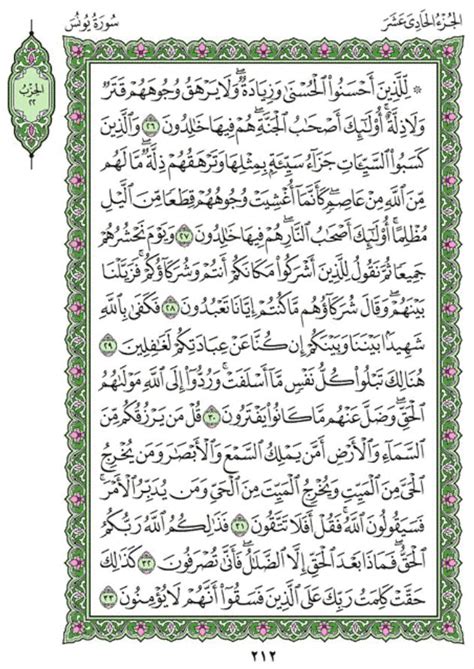 سُورَةُ يُونُسَ
الجُزْءُ الحَادِيَ عَشَرَ
الحِزْبُ
٢٢
۞ لِّلَّذِينَ أَحْسَنُوا۟ ٱلْحُسْنَىٰ وَزِيَادَةٌ ۖ وَلَا يَرْهَقُ وُجُوهَهُمْ قَتَرٌ
وَلَا ذِلَّةٌ ۚ أُو۟لَٰٓئِكَ أَصْحَٰبُ ٱلْجَنَّةِ ۖ هُمْ فِيهَا خَٰلِدُونَ ٢٦ وَٱلَّذِينَ
كَسَبُوا۟ ٱلسَّيِّـَٔاتِ جَزَآءُ سَيِّئَةٍۭ بِمِثْلِهَا وَتَرْهَقُهُمْ ذِلَّةٌ ۖ مَّا لَهُم
مِّنَ ٱللَّهِ مِنْ عَاصِمٍ ۖ كَأَنَّمَآ أُغْشِيَتْ وُجُوهُهُمْ قِطَعًا مِّنَ ٱلَّيْلِ
مُظْلِمًا ۚ أُو۟لَٰٓئِكَ أَصْحَٰبُ ٱلنَّارِ ۖ هُمْ فِيهَا خَٰلِدُونَ ٢٧ وَيَوْمَ نَحْشُرُهُمْ
جَمِيعًا ثُمَّ نَقُولُ لِلَّذِينَ أَشْرَكُوا۟ مَكَانَكُمْ أَنتُمْ وَشُرَكَآؤُكُمْ ۚ فَزَيَّلْنَا
بَيْنَهُمْ ۖ وَقَالَ شُرَكَآؤُهُم مَّا كُنتُمْ إِيَّانَا تَعْبُدُونَ ٢٨ فَكَفَىٰ بِٱللَّهِ
شَهِيدًۢا بَيْنَنَا وَبَيْنَكُمْ إِن كُنَّا عَنْ عِبَادَتِكُمْ لَغَٰفِلِينَ ٢٩
هُنَالِكَ تَبْلُوا۟ كُلُّ نَفْسٍ مَّآ أَسْلَفَتْ ۚ وَرُدُّوٓا۟ إِلَى ٱللَّهِ مَوْلَىٰهُمُ
ٱلْحَقِّ ۖ وَضَلَّ عَنْهُم مَّا كَانُوا۟ يَفْتَرُونَ ٣٠ قُلْ مَن يَرْزُقُكُم مِّنَ
ٱلسَّمَآءِ وَٱلْأَرْضِ أَمَّن يَمْلِكُ ٱلسَّمْعَ وَٱلْأَبْصَٰرَ وَمَن يُخْرِجُ
ٱلْحَىَّ مِنَ ٱلْمَيِّتِ وَيُخْرِجُ ٱلْمَيِّتَ مِنَ ٱلْحَىِّ وَمَن يُدَبِّرُ ٱلْأَمْرَ ۚ
فَسَيَقُولُونَ ٱللَّهُ ۚ فَقُلْ أَفَلَا تَتَّقُونَ ٣١ فَذَٰلِكُمُ ٱللَّهُ رَبُّكُمُ
ٱلْحَقُّ ۖ فَمَاذَا بَعْدَ ٱلْحَقِّ إِلَّا ٱلضَّلَٰلُ ۖ فَأَنَّىٰ تُصْرَفُونَ ٣٢ كَذَٰلِكَ
حَقَّتْ كَلِمَتُ رَبِّكَ عَلَى ٱلَّذِينَ فَسَقُوٓا۟ أَنَّهُمْ لَا يُؤْمِنُونَ ٣٣
٢١٢